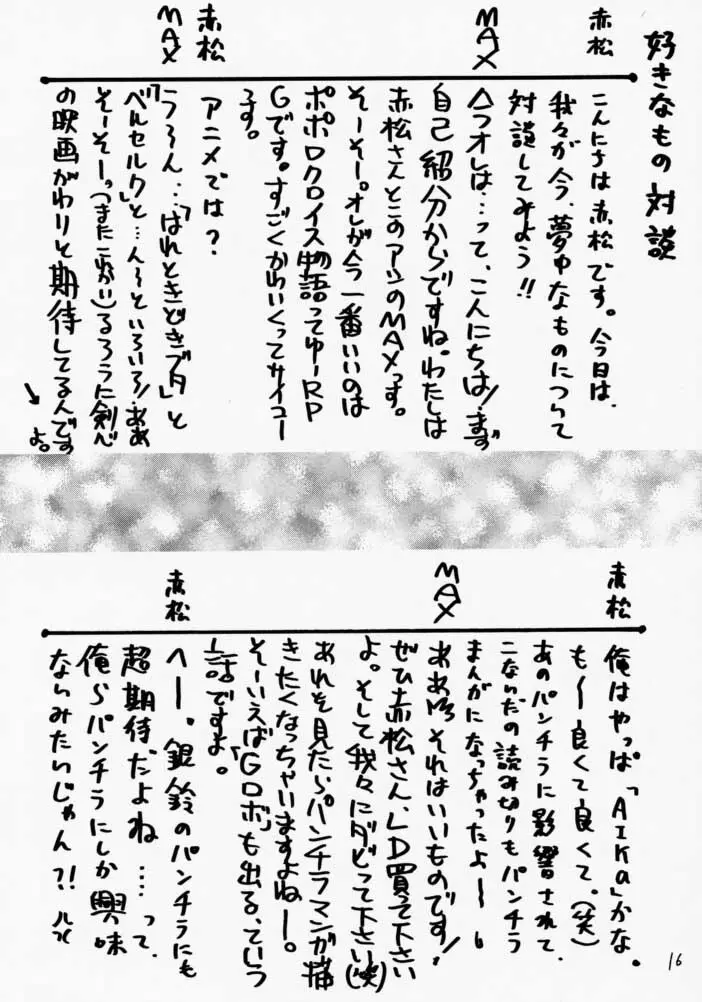 好きなもの対談
赤松
こんにちは赤松です。今日は、
我々が今、夢中なものについて
対談してみよう!!
MAX
今オレは…って、こんにちは!まず
自己紹介からですね。わたしは
赤松さんとこのアシのMAXっす。
そーそー。オレが今一番いいのは
ポポロクロイス物語ってゆーRP
Gです。すごくかわいくってサイコー
です。
赤松
アニメでは?
MAX
うーん…「はれときどきブタ」と
「ベルセルク」と…ん〜といろいろ!ああ
そーそーっ(またこれかい)るろうに剣心
の映画がわりと期待してるんです
よ。
赤松
俺はやっぱ「AIKa」かな。
も〜良くて良くて。(笑)
あのパンチラに影響されて、
こないだの読み切りもパンチラ
まんがになっちゃったよ〜
MAX
ああ それはいいものです!
ぜひ赤松さん、LD買って下さい
よ。そして我々にダビって下さい(笑)
あれを見たらパンチラマンガ描
きたくなっちゃいますよねー。
そーいえば「Gロボ」も出る、ていう
話ですよ。
赤松
へー。銀鈴のパンチラにも
超期待だよね……って、
俺らパンチラにしか興味
ないみたいじゃん?!
16